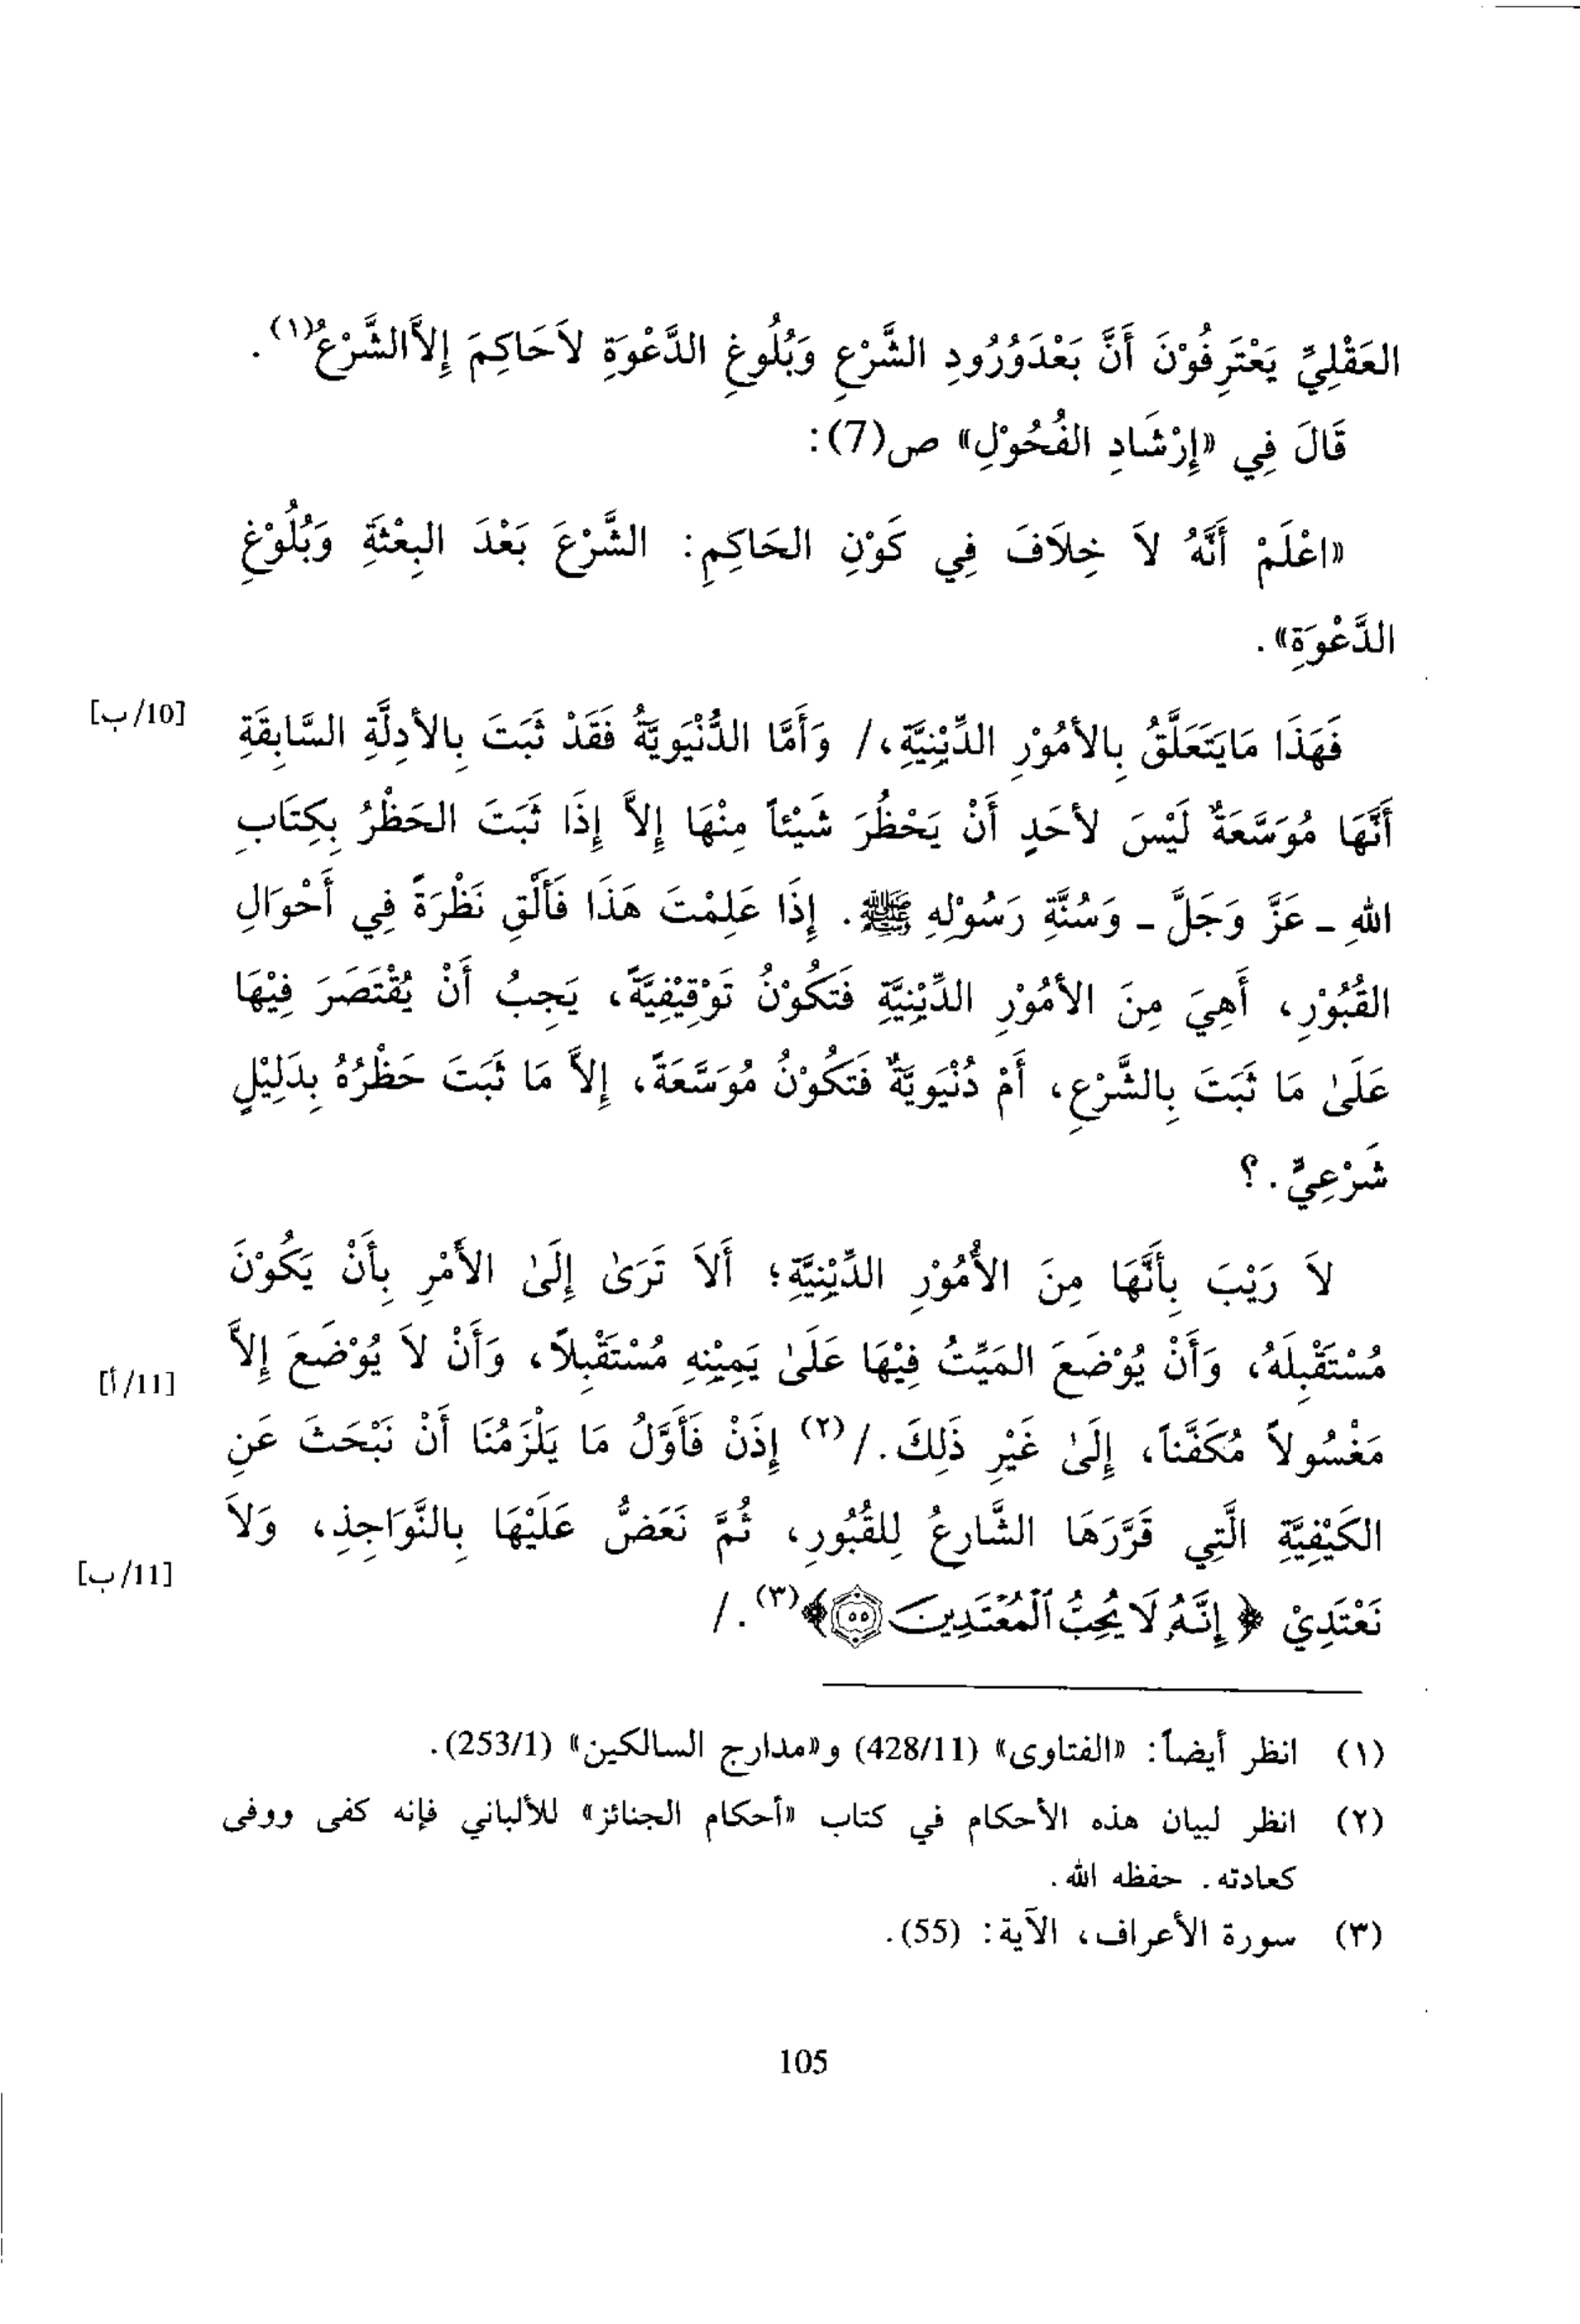 العَقْلِيِّ يَعْتَرِفُوْنَ أَنَّ بَعْدَوُرُودِ الشَّرْعِ وَبُلُوغِ الدَّعْوَةِ لاَحَاكِمَ إِلاَّالشَّرْعُ(١).
قَالَ فِي «إِرْشَادِ الفُحُوْلِ» ص(7):
«اعْلَمْ أَنَّهُ لاَ خِلَافَ فِي كَوْنِ الحَاكِمِ: الشَّرْعَ بَعْدَ البِعْثَةِ وَبُلُوْغِ
الدَّعْوَةِ».
فَهَذَا مَايَتَعَلَّقُ بِالأمُوْرِ الدِّيْنِيَّةِ،/ وَأَمَّا الدُّنْيَوِيَّةُ فَقَدْ ثَبَتَ بِالأدِلَّةِ السَّابِقَةِ [10/ب]
أَنَّهَا مُوَسَّعَةٌ لَيْسَ لأحَدٍ أَنْ يَحْظُرَ شَيْئاً مِنْهَا إِلاَّ إِذَا ثَبَتَ الحَظْرُ بِكِتَابِ
اللهِ ـ عَزَّ وَجَلَّ ـ وَسُنَّةِ رَسُوْلِهِ ﷺ. إِذَا عَلِمْتَ هَذَا فَأَلْقِ نَظْرَةً فِي أَحْوَالِ
القُبُوْرِ، أَهِيَ مِنَ الأمُوْرِ الدِّيْنِيَّةِ فَتَكُوْنُ تَوْقِيْفِيَّةً، يَجِبُ أَنْ يُقْتَصَرَ فِيْهَا
عَلَىٰ مَا ثَبَتَ بِالشَّرْعِ، أَمْ دُنْيَوِيَّةٌ فَتَكُوْنُ مُوَسَّعَةً، إِلاَّ مَا ثَبَتَ حَظْرُهُ بِدَلِيْلٍ
شَرْعِيٍّ.؟
لاَ رَيْبَ بِأَنَّهَا مِنَ الأُمُوْرِ الدِّيْنِيَّةِ؛ أَلاَ تَرَىٰ إِلَىٰ الأَمْرِ بِأَنْ يَكُوْنَ
مُسْتَقْبِلَهُ، وَأَنْ يُوْضَعَ المَيِّتُ فِيْهَا عَلَىٰ يَمِيْنِهِ مُسْتَقْبِلاً، وَأَنْ لاَ يُوْضَعَ إِلاَّ [11/أ]
مَغْسُولاً مُكَفَّناً، إِلَىٰ غَيْرِ ذَلِكَ./(٢) إِذَنْ فَأَوَّلُ مَا يَلْزَمُنَا أَنْ نَبْحَثَ عَنِ
الكَيْفِيَّةِ الَّتِي قَرَّرَهَا الشَّارِعُ لِلقُبُورِ، ثُمَّ نَعَضُّ عَلَيْهَا بِالنَّوَاجِذِ، وَلاَ
نَعْتَدِيْ ﴿إِنَّهُ لَا يُحِبُّ ٱلْمُعْتَدِينَ ٥٥﴾(٣)./ [11/ب]
(١) انظر أيضاً: «الفتاوى» (428/11) و«مدارج السالكين» (253/1).
(٢) انظر لبيان هذه الأحكام في كتاب «أحكام الجنائز» للألباني فإنه كفى ووفى
كعادته. حفظه الله.
(٣) سورة الأعراف، الآية: (55).
105